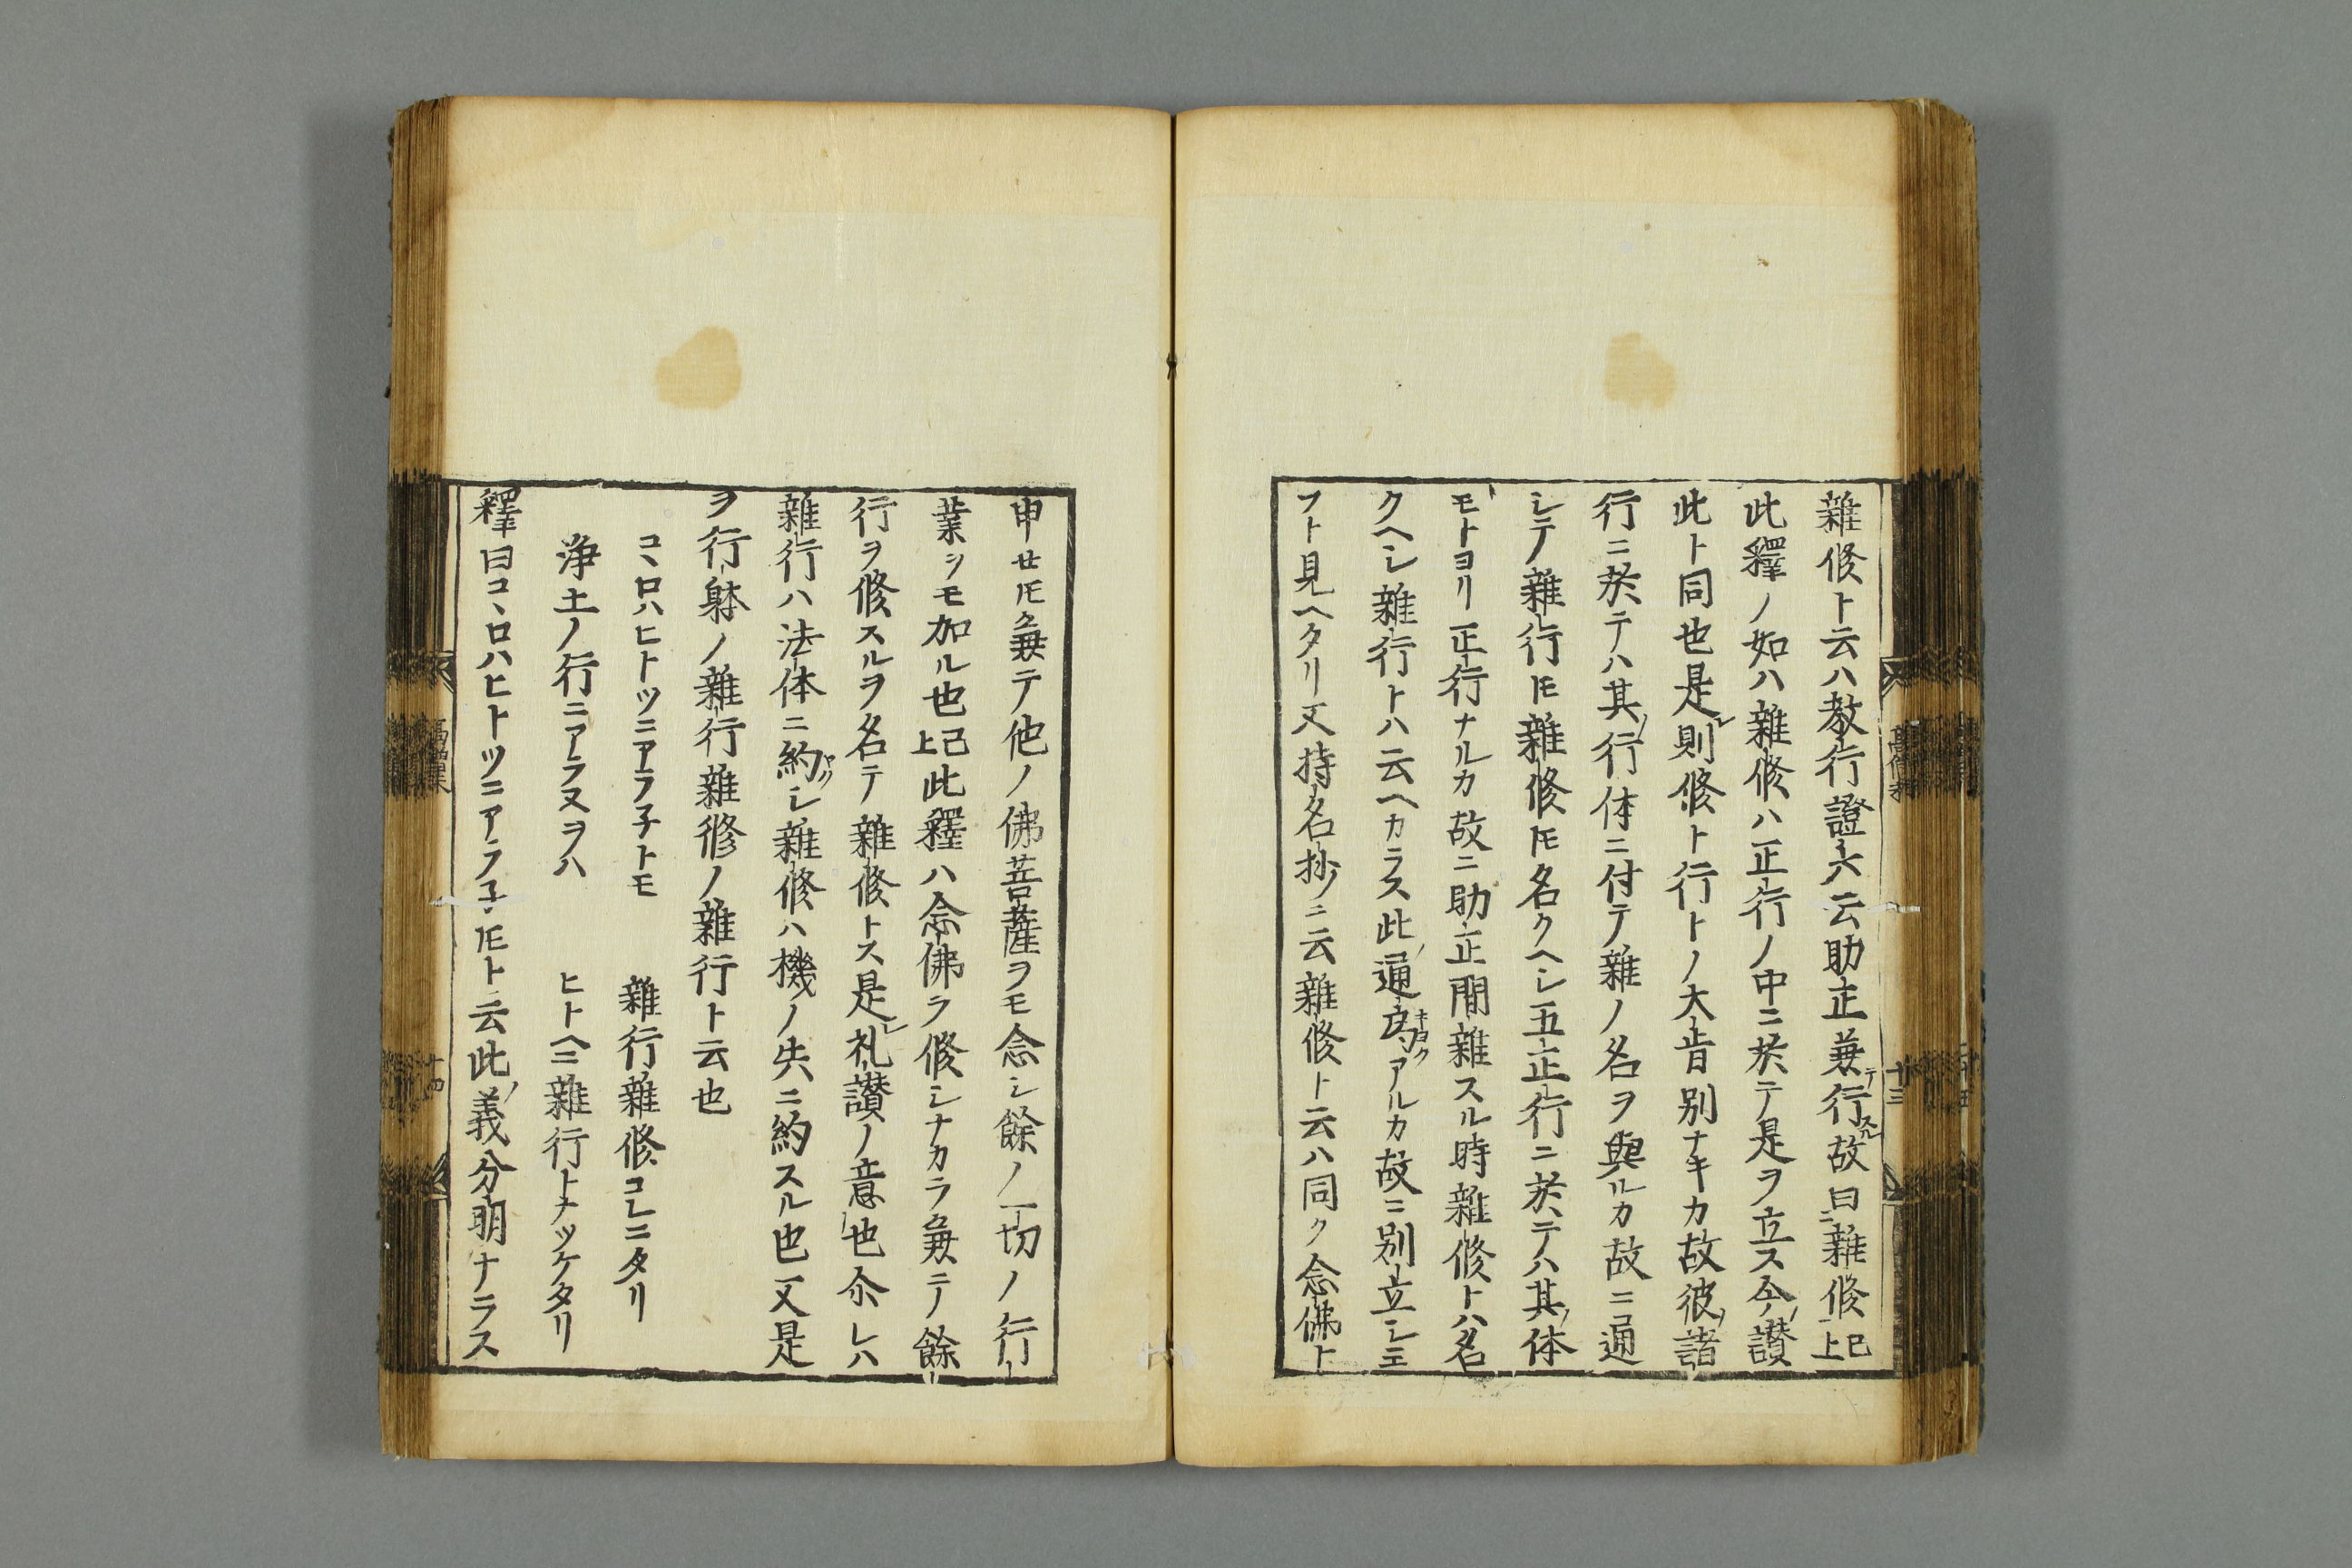 雜修ト云ハ教行證六云助正兼テ行スル故曰ニ雜修已上
此釋ノ如ハ雜修ハ正行ノ中ニ於テ是ヲ立ス今ノ讃
此ト同也是レ則修ト行トノ大旨別ナキカ故彼ノ諸
行ニ於テハ其ノ行体ニ付テ雜ノ名ヲ與ルカ故ニ通
シテ雜行トモ雜修トモ名クヘシ五正行ニ於テハ其ノ体
モトヨリ正行ナルカ故ニ助正間雜スル時雜修トハ名
クヘシ雜行トハ云ヘカラス此ノ通局キヨクアルカ故ニ別立シ玉
フト見ヘタリ又持名抄ニ云雜修ト云ハ同ク念佛ト
申セトモ兼テ他ノ佛菩薩ヲモ念シ餘ノ一切ノ行
業ヲモ加ル也已上此釋ハ念佛ヲ修シナカラ兼テ餘
行ヲ修スルヲ名テ雜修トス是レ礼讃ノ意也尒レハ
雜行ハ法体ニ約ヤクシ雜修ハ機ノ失ニ約スル也又是
ヲ行躰ノ雜行雜修ノ雜行ト云也
コヽロハヒトツニアラ子トモ　雜行雜修コレニタリ
浄土ノ行ニアラヌヲハ　ヒトヘニ雜行トナツケタリ
釋曰コヽロハヒトツニアラ子トモト云此ノ義分明ナラス
十三
十四